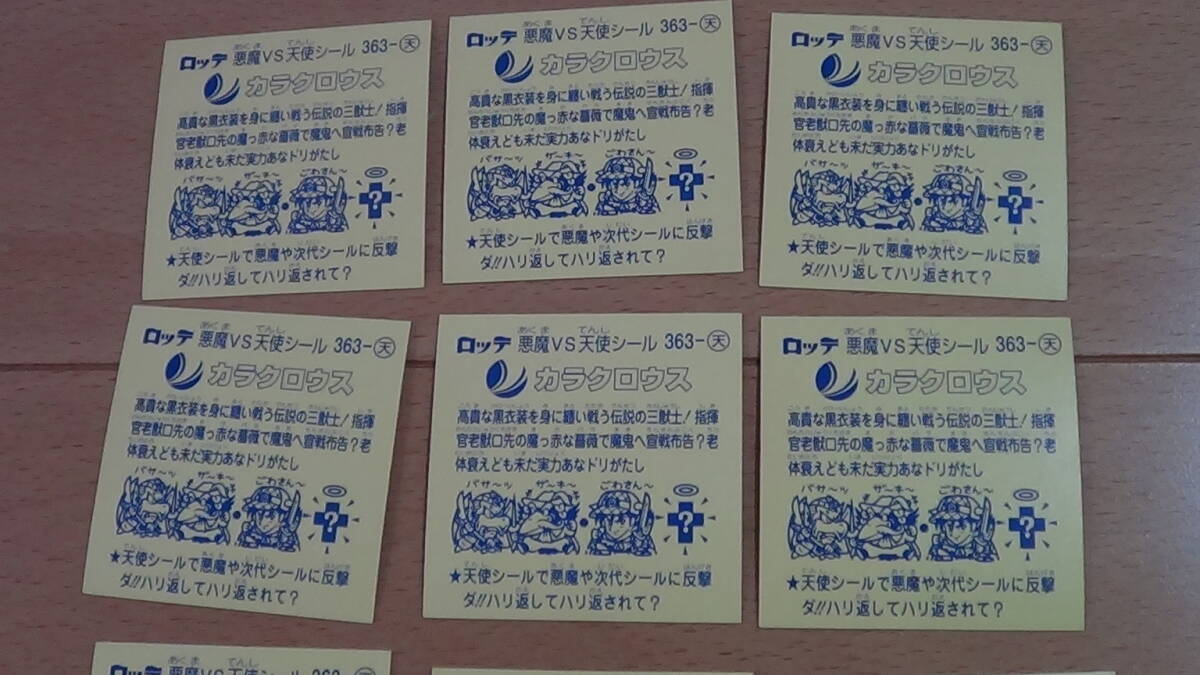 ロッテ 悪魔VS天使シール 363-天
カラクロウス
高貴な黒衣装を身に纏い戦う伝説の三獣士!指揮
官老獣口先の魔っ赤な薔薇で魔鬼へ宣戦布告?老
体衰えども未だ実力あなドリがたし
バサ〜ッ ザ〜ネ〜 ごわさん〜
?
★天使シールで悪魔や次代シールに反撃
ダ!!ハリ返してハリ返されて?
ロッテ 悪魔VS天使シール 363-天
カラクロウス
高貴な黒衣装を身に纏い戦う伝説の三獣士!指揮
官老獣口先の魔っ赤な薔薇で魔鬼へ宣戦布告?老
体衰えども未だ実力あなドリがたし
バサ〜ッ ザ〜ネ〜 ごわさん〜
?
★天使シールで悪魔や次代シールに反撃
ダ!!ハリ返してハリ返されて?
ロッテ 悪魔VS天使シール 363-天
カラクロウス
高貴な黒衣装を身に纏い戦う伝説の三獣士!指揮
官老獣口先の魔っ赤な薔薇で魔鬼へ宣戦布告?老
体衰えども未だ実力あなドリがたし
バサ〜ッ ザ〜ネ〜 ごわさん〜
?
★天使シールで悪魔や次代シールに反撃
ダ!!ハリ返してハリ返されて?
ロッテ 悪魔VS天使シール 363-天
カラクロウス
高貴な黒衣装を身に纏い戦う伝説の三獣士!指揮
官老獣口先の魔っ赤な薔薇で魔鬼へ宣戦布告?老
体衰えども未だ実力あなドリがたし
バサ〜ッ ザ〜ネ〜 ごわさん〜
?
★天使シールで悪魔や次代シールに反撃
ダ!!ハリ返してハリ返されて?
ロッテ 悪魔VS天使シール 363-天
カラクロウス
高貴な黒衣装を身に纏い戦う伝説の三獣士!指揮
官老獣口先の魔っ赤な薔薇で魔鬼へ宣戦布告?老
体衰えども未だ実力あなドリがたし
バサ〜ッ ザ〜ネ〜 ごわさん〜
?
★天使シールで悪魔や次代シールに反撃
ダ!!ハリ返してハリ返されて?
ロッテ 悪魔VS天使シール 363-天
カラクロウス
高貴な黒衣装を身に纏い戦う伝説の三獣士!指揮
官老獣口先の魔っ赤な薔薇で魔鬼へ宣戦布告?老
体衰えども未だ実力あなドリがたし
バサ〜ッ ザ〜ネ〜 ごわさん〜
?
★天使シールで悪魔や次代シールに反撃
ダ!!ハリ返してハリ返されて?
ロッテ 悪魔VS天使シール 363-天